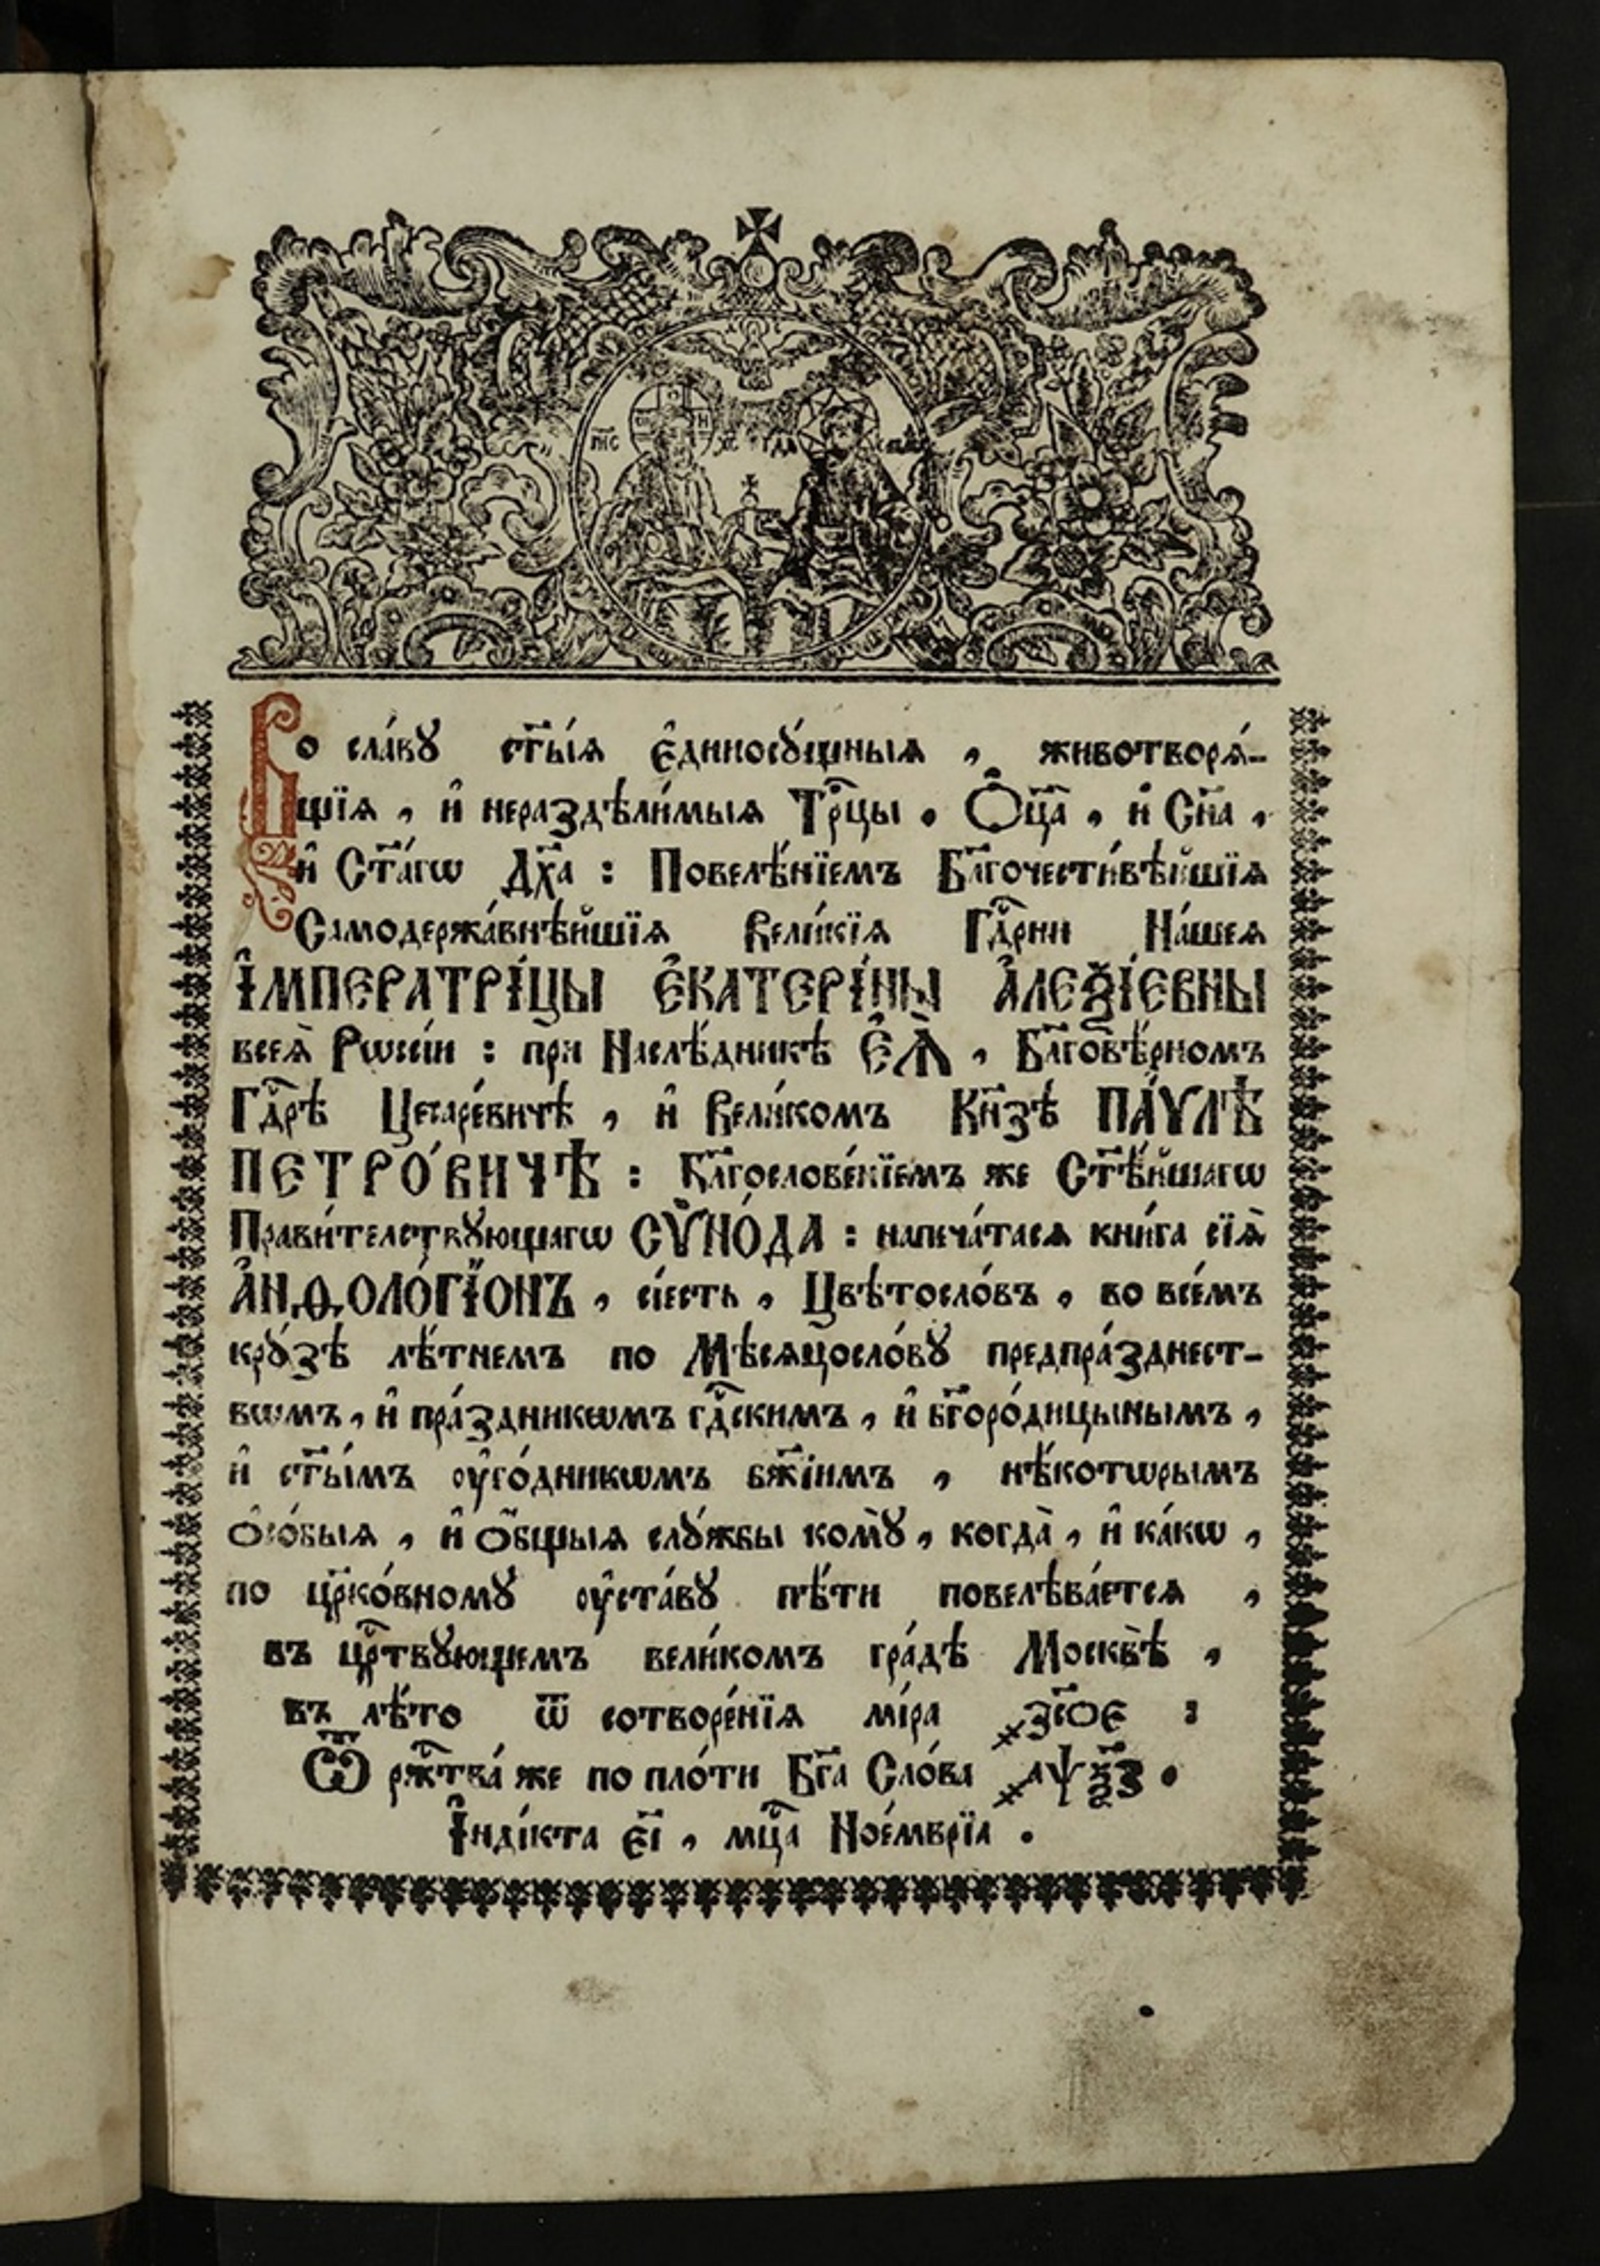 Во сла́вꙋ ст҃ы́ѧ є҆диносꙋ́щныѧ , животворѧ́-
щїѧ , и҆ нераздѣли́мыѧ Трⷪ҇цы . Ѻ҆ц҃а̀ , и҆ Сн҃а ,
и҆ Ст҃а́гѡ Дх҃а : Повелѣ́нїемъ Бл҃гочести́вѣйшїѧ
Самодержа́внѣйшїѧ Вели́кїѧ Гдⷭ҇рни На́шеѧ
І҆МПЕРАТРІ́ЦЫ Є҆КАТЕРІ́НЫ А҆ЛЕѮІ́ЕВНЫ
всеѧ̀ Рѡссі́и : прѝ Наслѣ́дникѣ Є҆Ѧ̀ , Бл҃говѣ́рномъ
Гдⷭ҇рѣ Цесаре́вичѣ , и҆ Вели́комъ Кн҃зѣ ПА́ѴЛѢ
ПЕТРО́ВИЧѢ : Бл҃гослове́нїемъ же Ст҃ѣ́йшагѡ
Прави́телствꙋющагѡ СѴ̈НО́ДА : напеча́тасѧ кни́га сїѧ̀
А҆НѲОЛО́ГЇОНЪ , сі́есть , Цвѣтосло́въ , во все́мъ
крꙋ́зѣ лѣ́тнемъ по Мѣсѧцосло́вꙋ предпра́зднест-
вѡмъ , и҆ пра́здникѡмъ гдⷭ҇скимъ , и҆ бг҃оро́дицынымъ ,
и҆ ст҃ы́мъ ᲂу҆го́дникѡмъ бж҃іимъ , нѣ́котѡрымъ
ѻ҆со́быѧ , и҆ ѻ҆́бщыѧ слꙋ́жбы комꙋ̀ , когда̀ , и҆ ка́кѡ ,
по цр҃ко́вномꙋ ᲂу҆ста́вꙋ пѣ́ти повелѣва́етсѧ ,
въ црⷭ҇твꙋющемъ вели́комъ гра́дѣ Москвѣ̀ ,
въ лѣ́то ѿ сотворе́нїѧ мі́ра ҂зс҃ѻе :
Ѿ ржⷭ҇тва́ же по пло́ти Бг҃а Сло́ва ҂аѱѯ҃з .
І҆нді́кта є҃і , мцⷭ҇а Ное́мврїа .